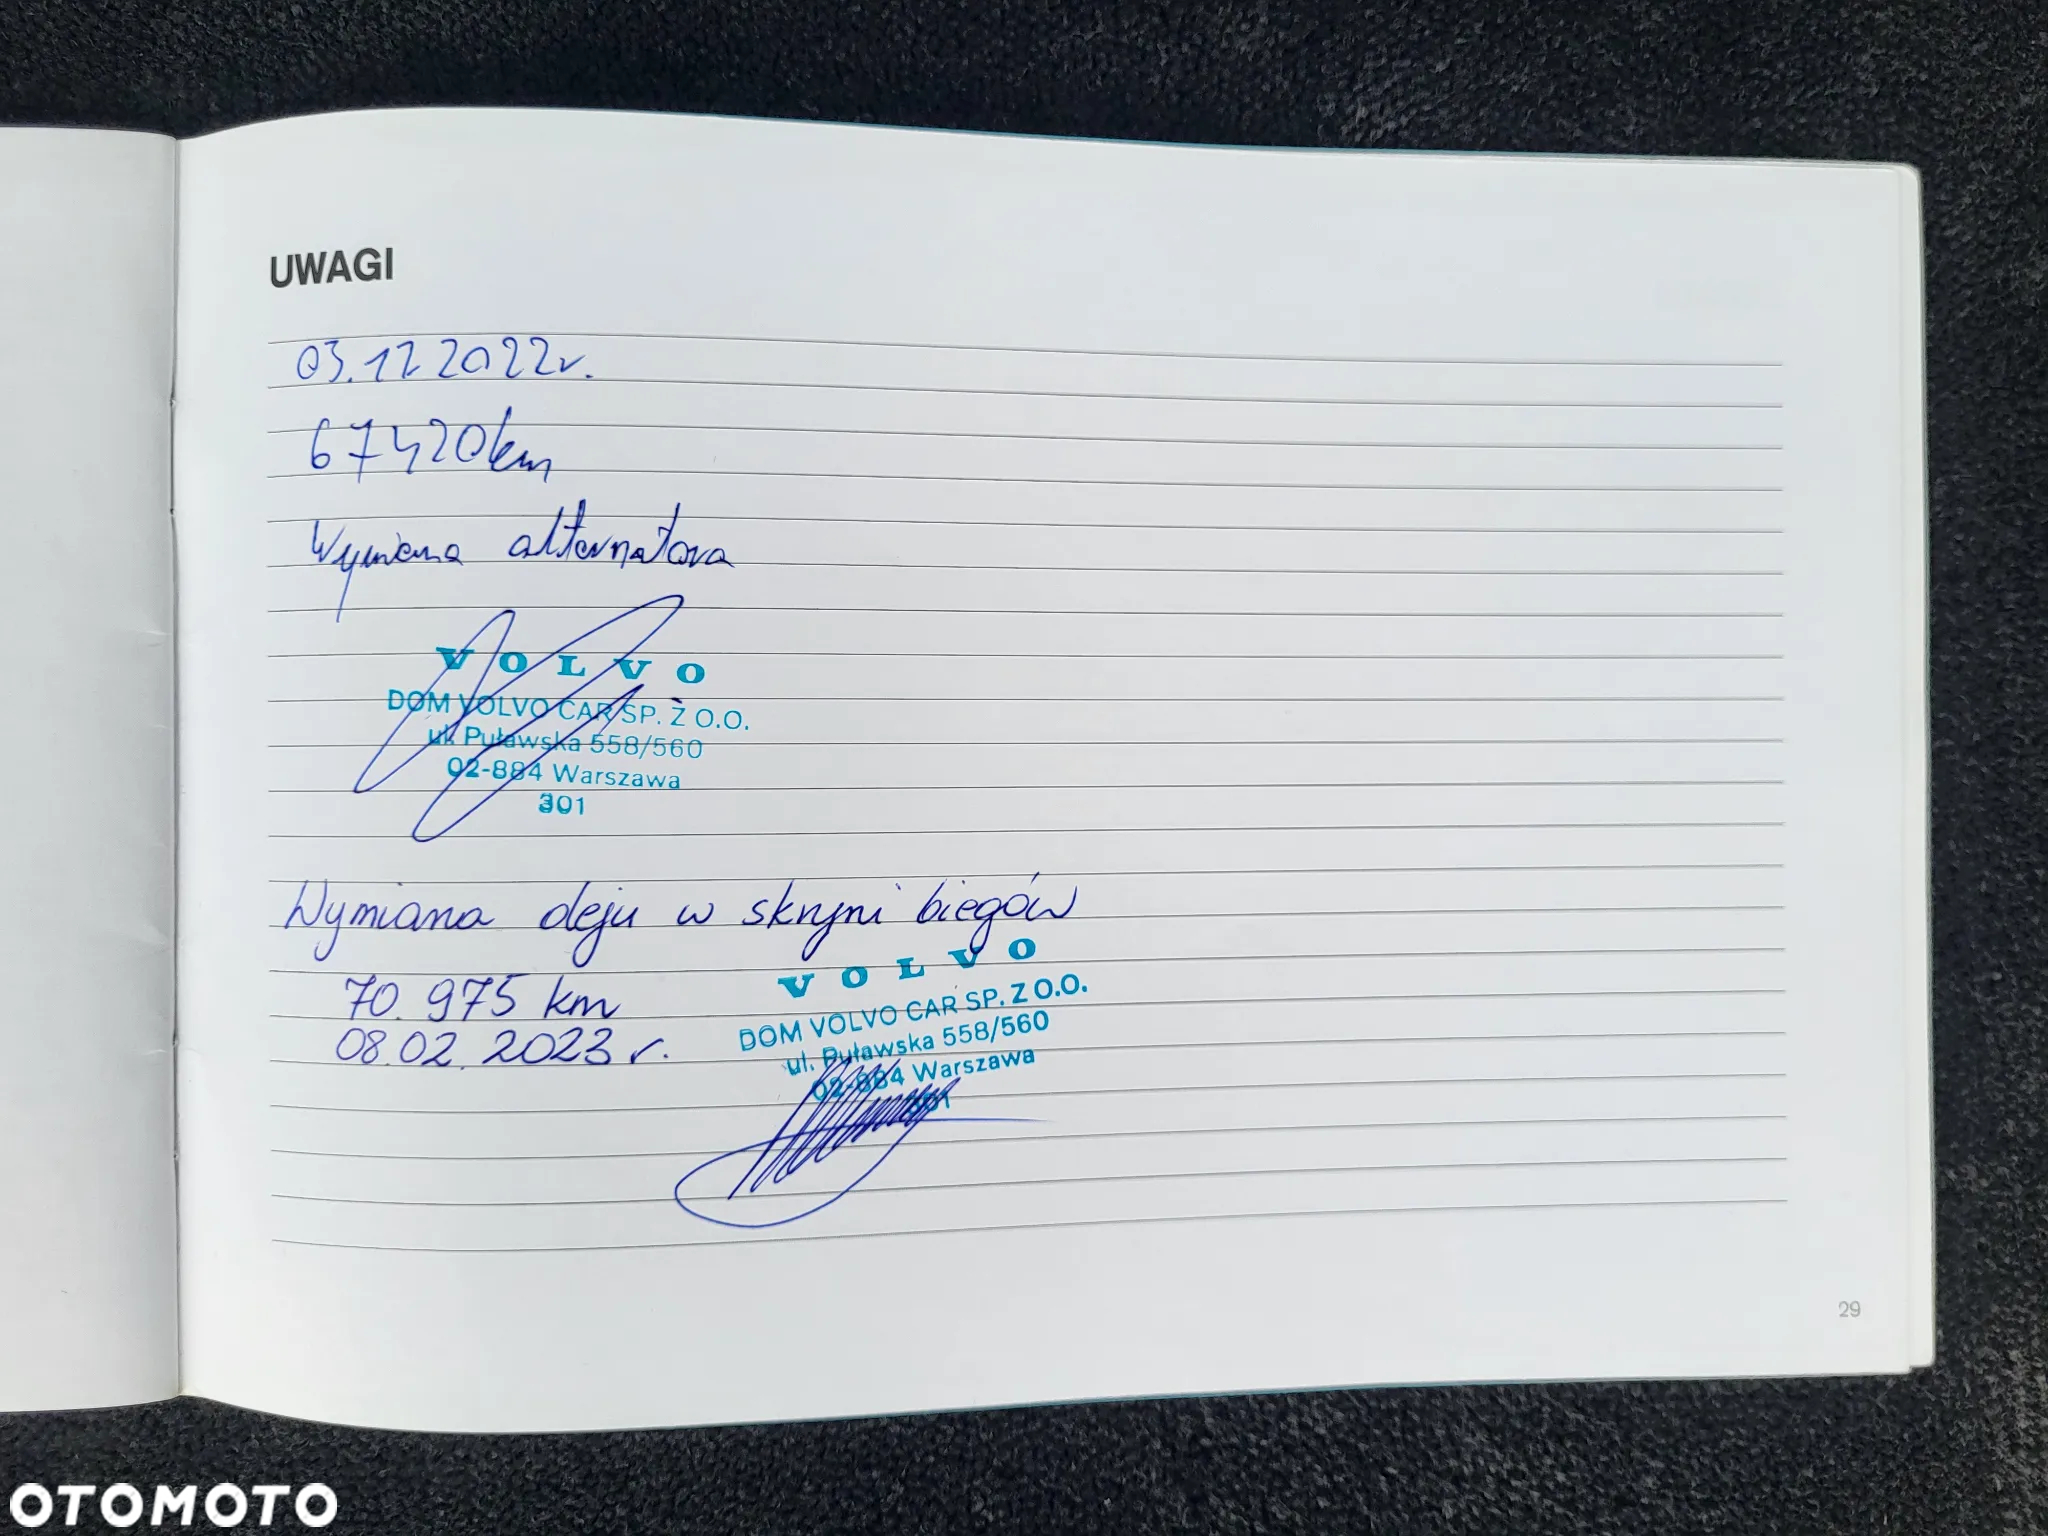 UWAGI
03.12 2022r.
67420km
Wymiana alternatora
VOLVO
DOM VOLVO CAR SP. Z O.O.
ul. Puławska 558/560
02-884 Warszawa
301
Wymiana oleju w skrzyni biegów
70.975 km
08.02.2023 r.
VOLVO
DOM VOLVO CAR SP. Z O.O.
ul. Puławska 558/560
02-884 Warszawa
301
29
OTOMOTO